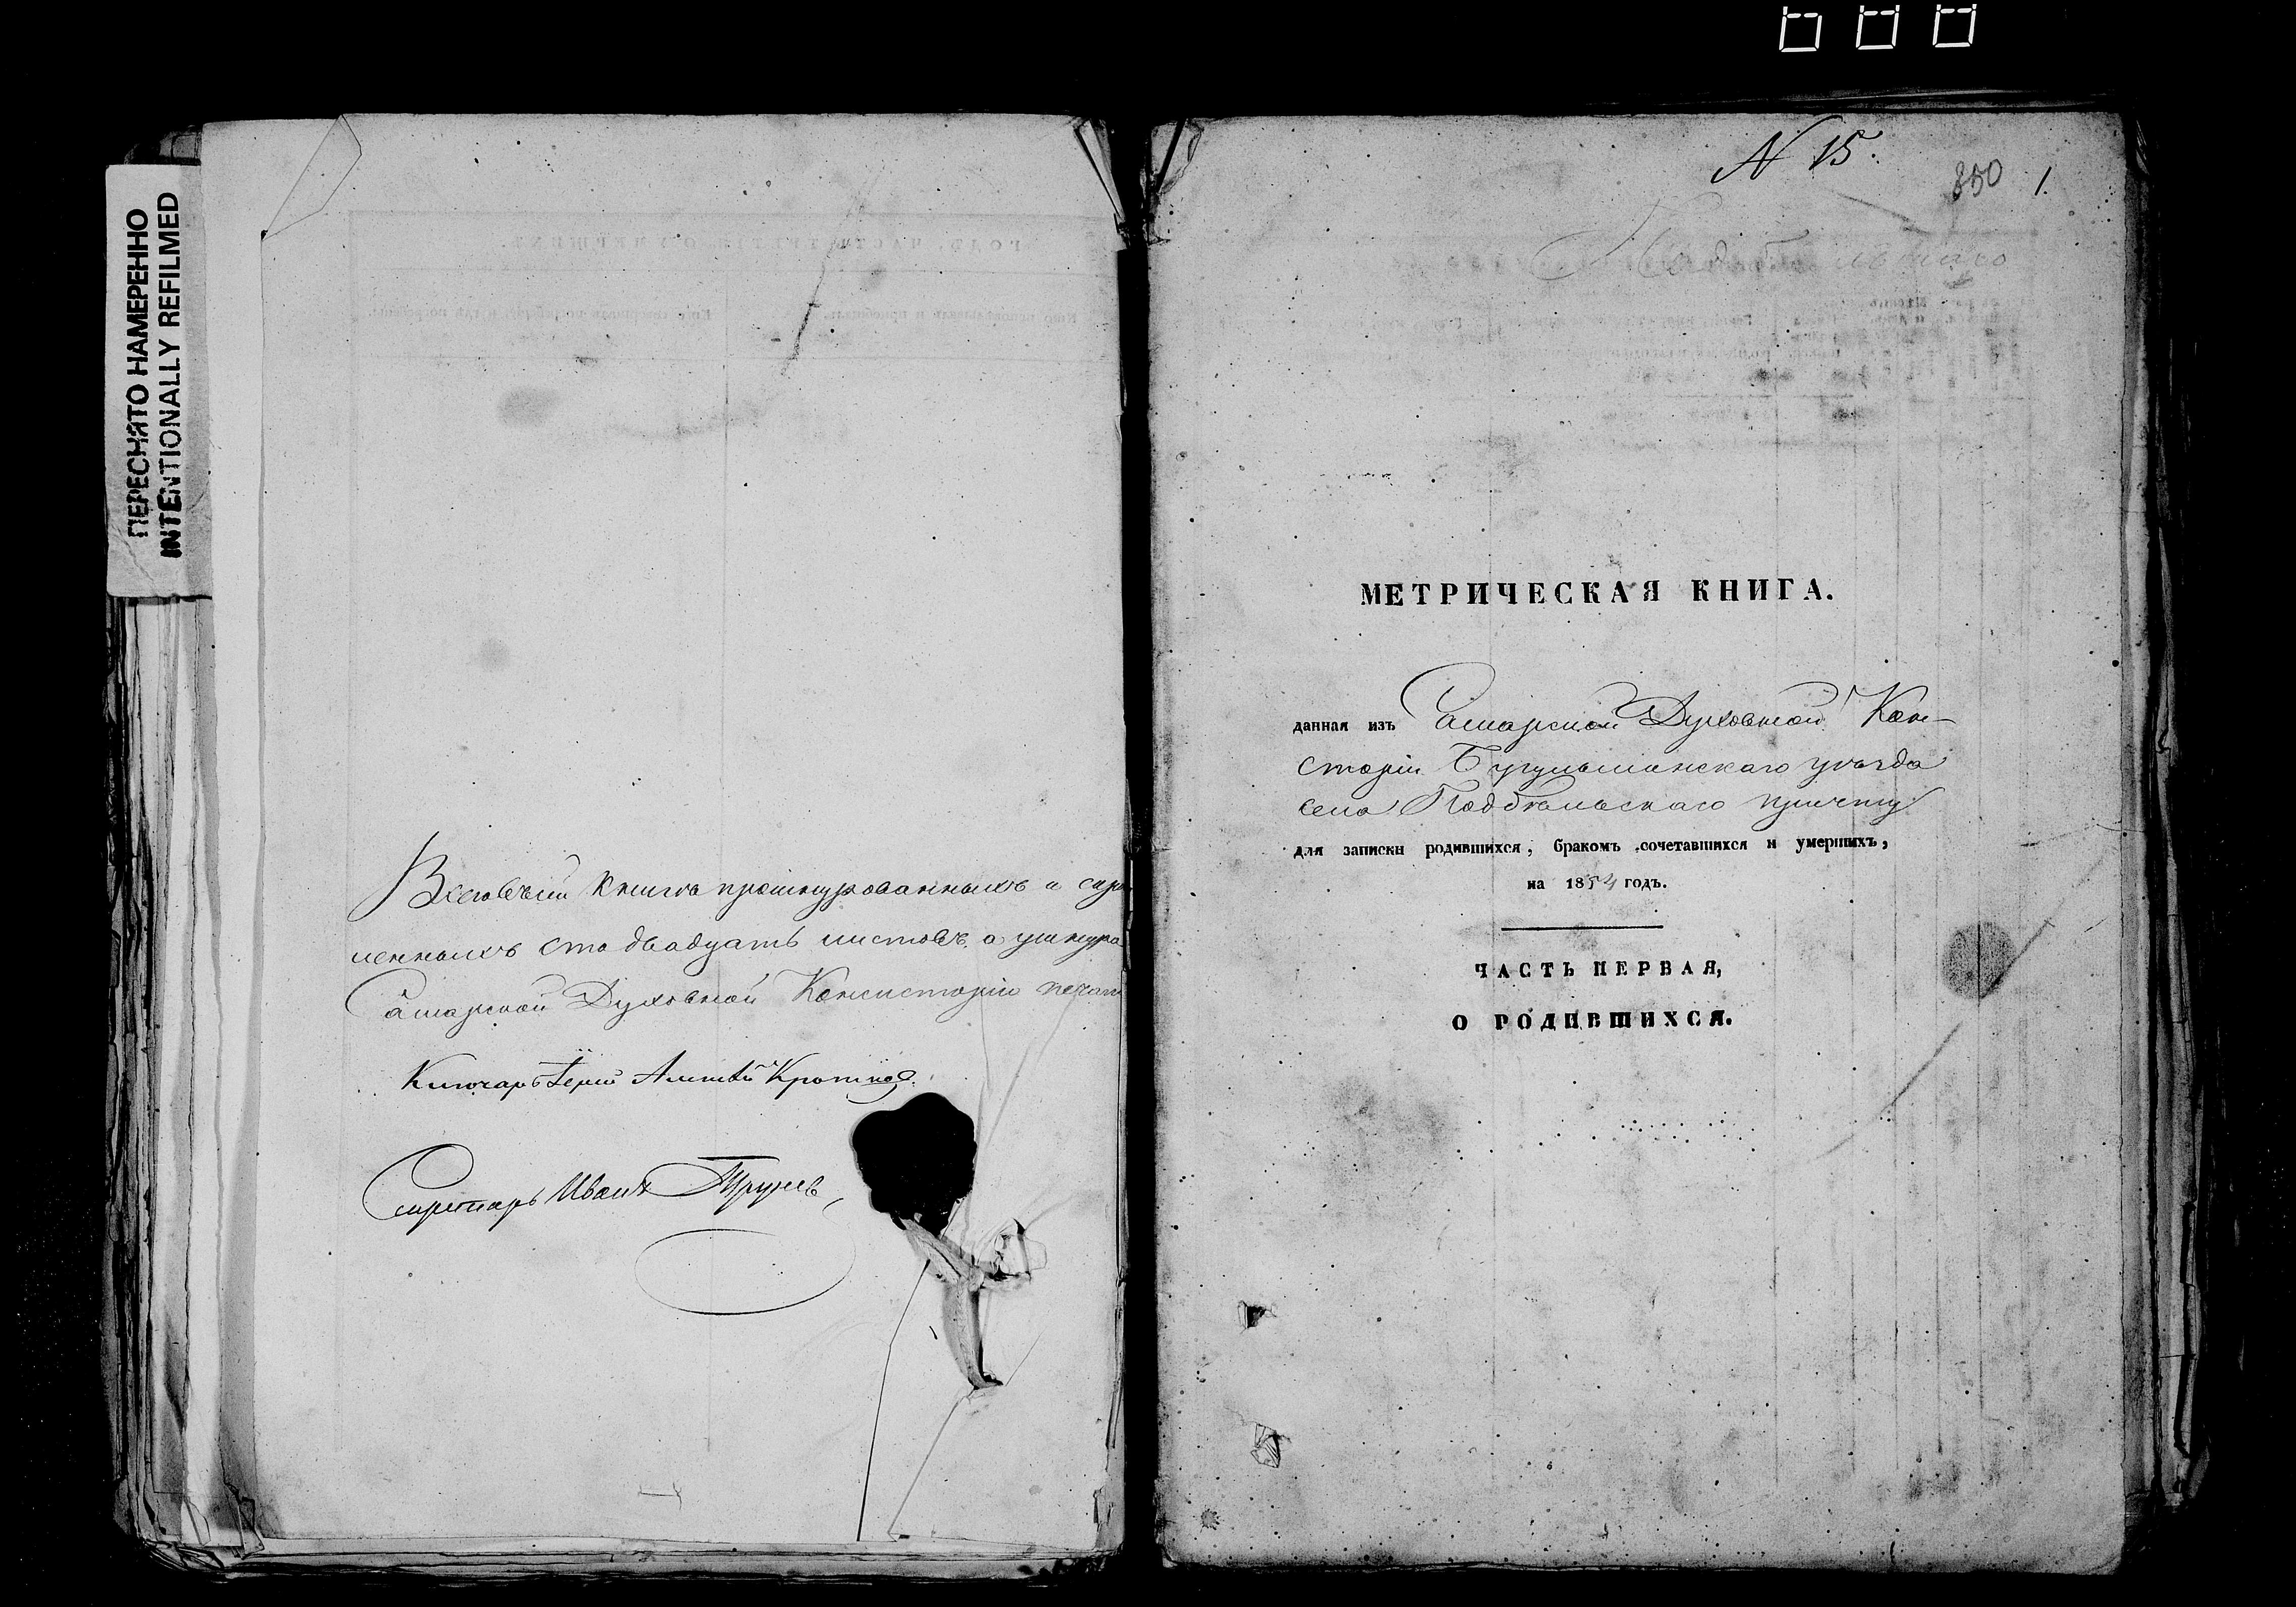 ПЕРЕСНЯТО НАМЕРЕННО
INTENTIONALLY REFILMED
Всего въ сей книгѣ прошнурованныхъ и скрѣ
ленныхъ сто двадцать листовъ, а у шнура
Самарской Духовной Консисторіи печат
Ключарь Іерей
Секретарь Иванъ
N 15.
350 1.
МЕТРИЧЕСКАЯ КНИГА.
данная изъ Самарской Духовной Кон-
сторіи Бугульминскаго уѣзда
села Подбѣльскаго причту
для записки родившихся, бракомъ сочетавшихся и умершихъ,
на 1854 годъ.
ЧАСТЬ ПЕРВАЯ,
О РОДИВШИХСЯ.